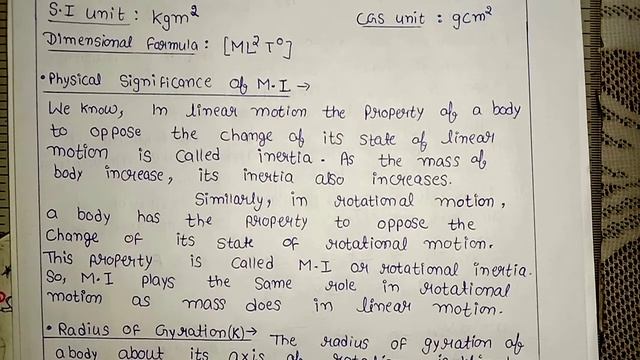 S.I unit : Kgm² CGS unit : gcm²
Dimensional formula : [ML² T⁰]
• Physical Significance of M.I →
We know, In linear motion the property of a body
to oppose the change of its state of linear
motion is called inertia. As the mass of
body increase, its inertia also increases.
Similarly, in rotational motion,
a body has the property to oppose the
Change of its state of rotational motion.
This property is called M.I or rotational inertia.
So, M.I plays the same role in rotational
motion as mass does in linear motion.
• Radius of Gyration(K)→ The radius of gyration of
a body about its axis of